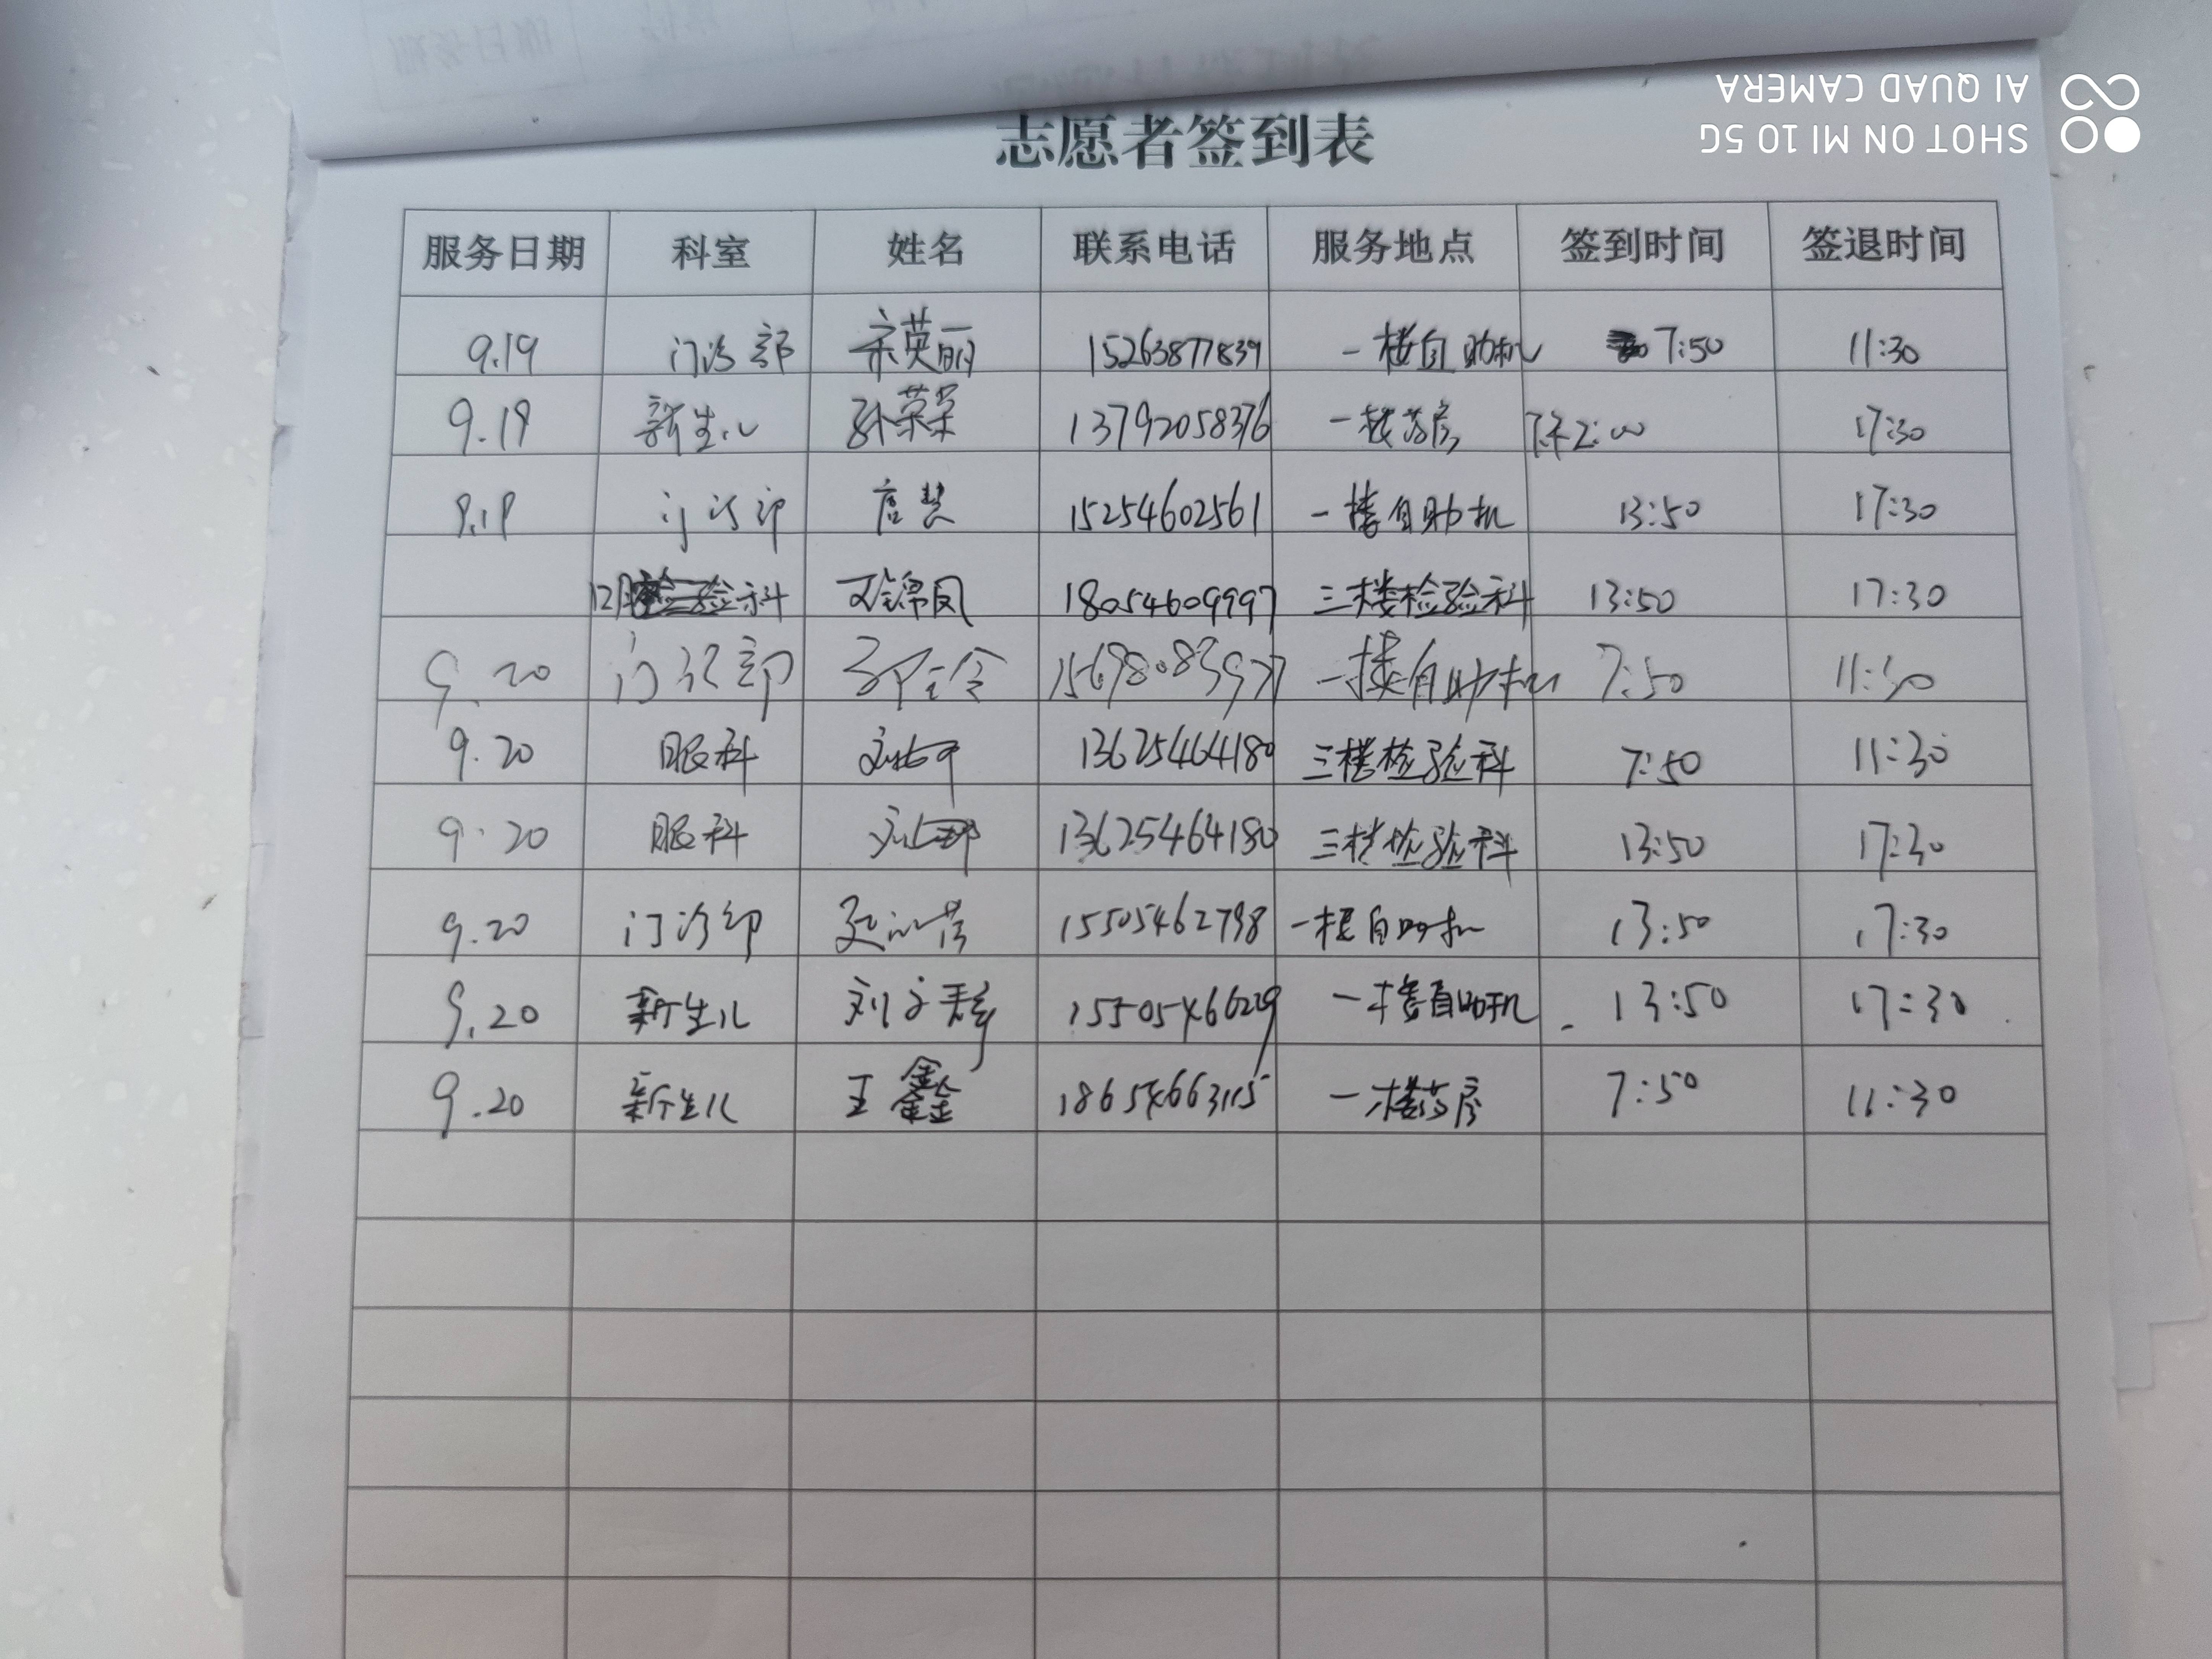 SHOT ON MI 10 5G
AI QUAD CAMERA
志愿者签到表
服务日期 科室 姓名 联系电话 服务地点 签到时间 签退时间
9.19 门诊部 宋英丽 15263877839 一楼自助机 7:50 11:30
9.19 新生儿 孙荣荣 13792058376 一楼药房 下午2:00 17:30
9.19 门诊部 唐慧 15254602561 一楼自助机 13:50 17:30
科 锦凤 18054609997 三楼检验科 13:50 17:30
9.20 门诊部 15698083977 一楼自助机 7:50 11:30
9.20 眼科 13625464180 三楼检验科 7:50 11:30
9.20 眼科 13625464180 三楼检验科 13:50 17:30
9.20 门诊部 15505462798 一楼自助机 13:50 17:30
9.20 新生儿 刘 15505466029 一楼自助机 13:50 17:30
9.20 新生儿 王鑫 18654663115 一楼药房 7:50 11:30